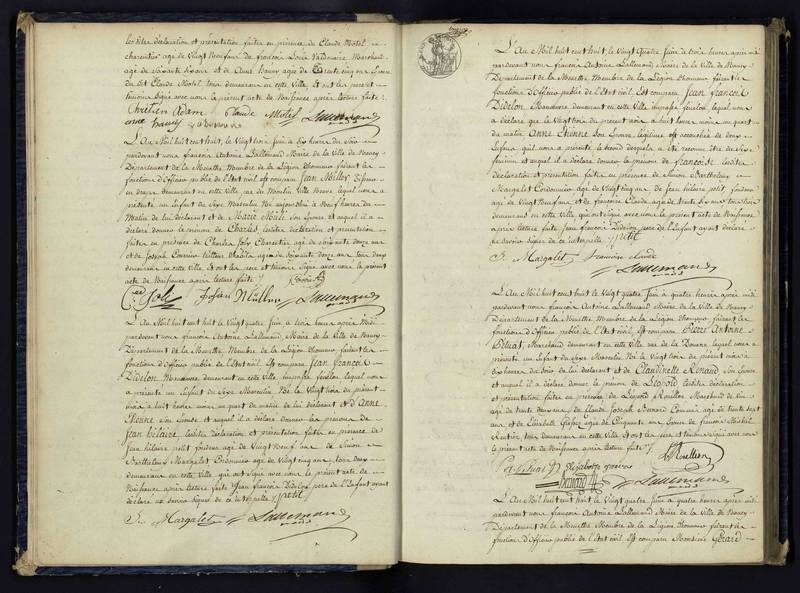 lesdites déclaration et présentation faites en présence de Claude Motel
charpentier agé de Vingt Neuf ans de françois Louis Vardenaire Marchand
agé de soixante six ans et de Anne haucy agée de trente cinq ans
dudit Claude Motel tous demeurans en cette Ville, Et ont les pere et
temoins signé avec nous le présent acte de Naissance après lecture faite
Chrétien Adam Claude Motel Lallemand
anne haucy
L'An Mil huit cent huit, le Vingt trois Juin à Six heures du Soir
pardevant nous françois Antoine Lallemand Maire de la Ville de Nancy
Département de la Meurthe Membre de la Légion d'honneur faisant les
fonctions d'Officier public de l'Etat civil, Est comparu Jean Miller
en drap demeurant en cette Ville rue du Moulin Ville Neuve lequel nous a
présenté un Enfant du Sexe Masculin Né aujourd'hui à Neuf heures du
Matin de lui déclarant et de Marie son Epouse et auquel il a
déclaré donner le prénom de Charles, lesdites déclaration et présentation
faites en présence de Charles Joly Charpentier agé de soixante douze ans
et de Joseph agé de soixante douze ans tous deux
demeurans en cette Ville, Et ont les pere et témoins signé avec nous le présent
acte de Naissance après lecture faite
Joly Johan Müller Lallemand
L'An Mil huit cent huit le Vingt quatre Juin à trois heures après Midi
pardevant nous françois Antoine Lallemand Maire de la Ville de Nancy
Département de la Meurthe, Membre de la Légion d'honneur faisant les
fonctions d'Officier public de l'Etat civil Est comparu Jean françois
Didelon Manœuvre demeurant en cette Ville impasse feuillon lequel nous
a présenté un Enfant du Sexe Masculin Né le Vingt trois du présent
mois à huit heures moins un quart du matin de lui déclarant et d'Anne
Etienne son Epouse et auquel il a déclaré donner les prénoms de
Jean hilaire lesdites déclaration et présentation faites en présence de
Jean hilaire petit fondeur agé de Vingt Neuf ans de Simon
Barthelemy Margalet Cordonnier agé de Vingt cinq ans tous deux
demeurans en cette Ville qui ont signé avec nous le présent acte de
Naissance après lecture faite Jean françois Didelon pere de l'Enfant ayant
déclaré ne savoir signer de ce interpellé petit
S. Margalet Lallemand
L'An Mil huit cent huit, le Vingt Quatre Juin à trois heures après midi
pardevant nous françois Antoine Lallemand Maire de la Ville de Nancy
Département de la Meurthe Membre de la Légion d'honneur faisant les
fonctions d'Officier public de l'Etat civil, Est comparu Jean françois
Didelon Manœuvre demeurant en cette Ville impasse feuillon lequel nous
a déclaré que le Vingt trois du présent mois à huit heures moins un quart
du matin Anne Etienne son Epouse légitime est accouchée de deux
Enfans qu'il nous a présenté le second desquels a été reconnu être du sexe
féminin et auquel il a déclaré donner le prénom de françoise lesdites
déclaration et présentation faites en présence de Simon Barthelemy
Margalet Cordonnier agé de Vingt cinq ans de Jean hilaire petit, fondeur
agé de Vingt Neuf ans et de françoise Claude agée de trente six ans tous trois
demeurans en cette Ville qui ont signé avec nous le présent acte de Naissance
après lecture faite Jean françois Didelon pere de l'Enfant ayant déclaré
ne savoir signer de ce interpellé petit
S. Margalet françoise claude
Lallemand
L'An Mil huit cent huit le Vingt quatre Juin à quatre heures après midi
pardevant nous françois Antoine Lallemand Maire de la Ville de Nancy
Département de la Meurthe Membre de la Légion d'honneur, faisant les
fonctions d'Officier public de l'Etat civil, Est comparu Pierre Antoine
Marchand demeurant en cette Ville rue de la Douane lequel nous a
présenté un Enfant du Sexe Masculin Né le Vingt trois du présent mois à
dix heures du Soir de lui déclarant et de Claudinette Renaud son Epouse
et auquel il a déclaré donner le prénom de Léopold lesdites déclaration
et présentation faites en présence de Léopold Roullier Marchand de Vin
agé de trente deux ans de Claude Joseph Bernard Commis agé de trente sept
ans et de Elisabeth agée de Cinquante ans
Rentière, tous demeurans en cette Ville Et ont les pere et témoins signé avec nous
le présent acte de Naissance après lecture faite
Roullier
Elizabeth
bernard Lallemand
L'An Mil huit cent huit, le Vingt quatre Juin à quatre heures après midi
pardevant nous françois Antoine Lallemand Maire de la Ville de Nancy
Département de la Meurthe Membre de la Légion d'honneur faisant les
fonctions d'Officier public de l'Etat civil, Est comparu Monsieur Gérard